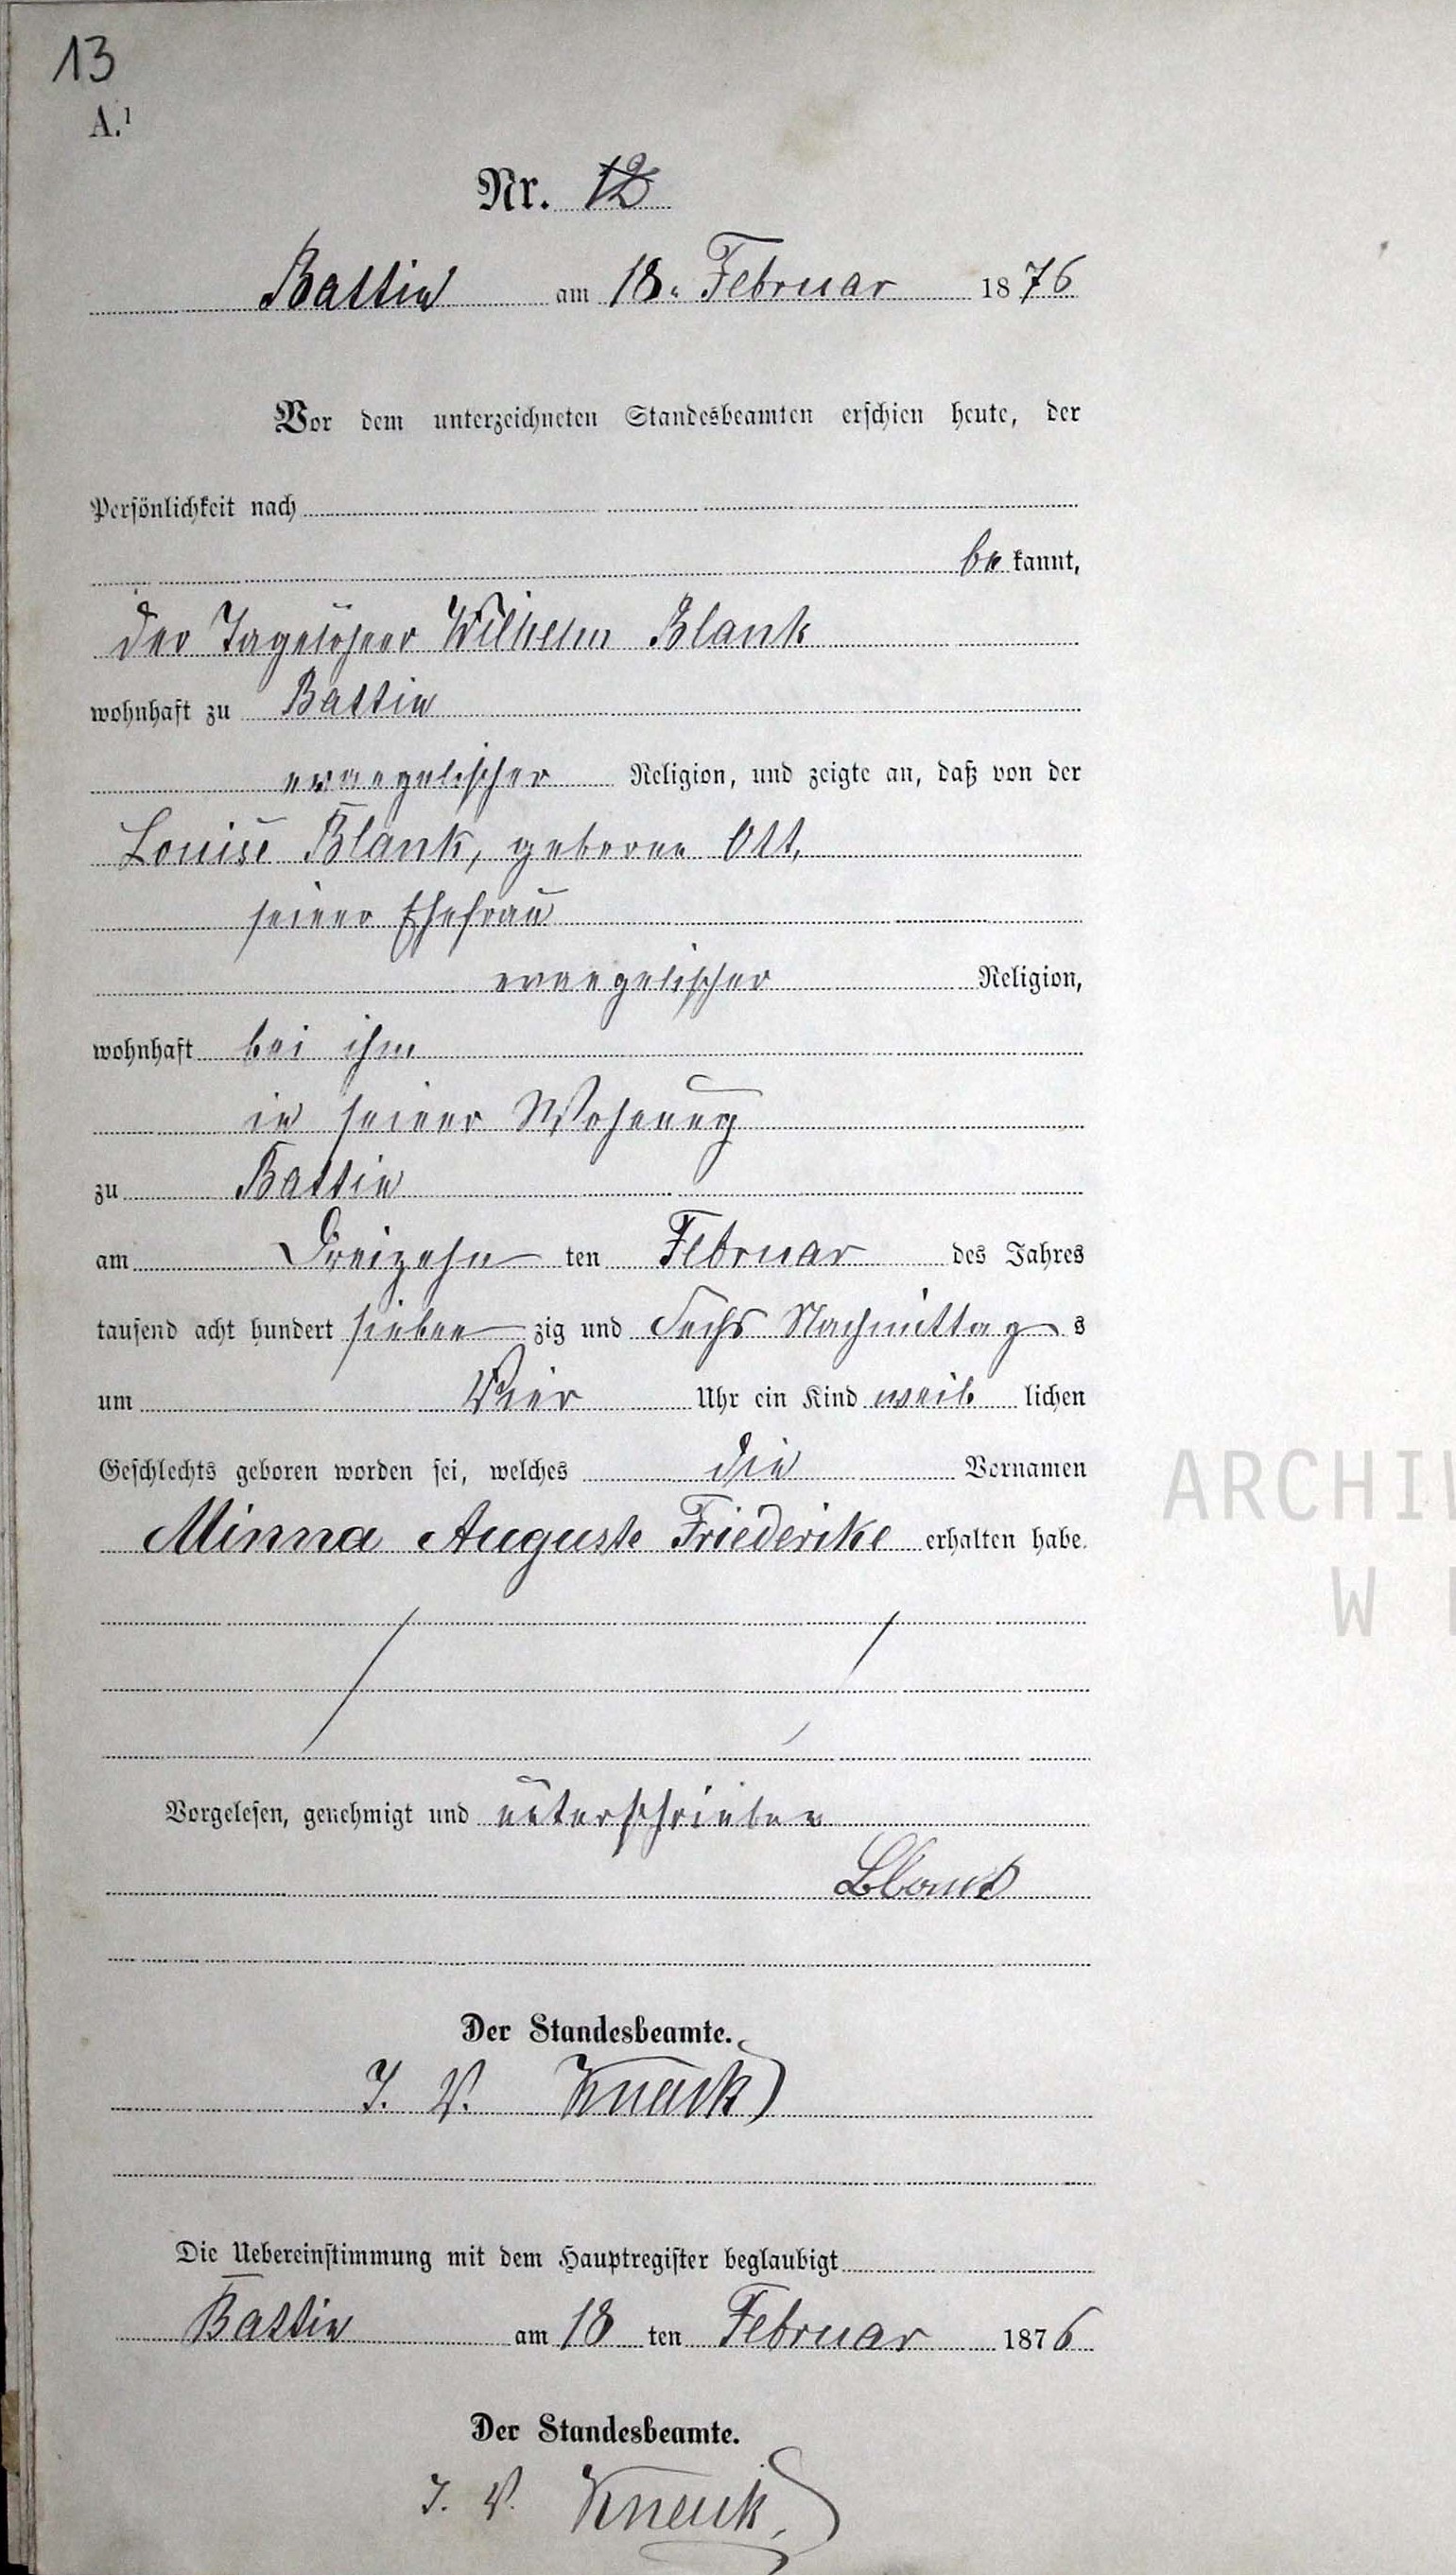 13
A.¹
Nr. 12
Battin am 18. Februar 1876
Vor dem unterzeichneten Standesbeamten erschien heute, der
Persönlichkeit nach
be kannt,
der Tagelöhner Wilhelm Blank
wohnhaft zu Battin
evangelischer Religion, und zeigte an, daß von der
Louise Blank, geborne Ott,
seiner Ehefrau
evangelischer Religion,
wohnhaft bei ihm
in seiner Wohnung
zu Battin
am Dreizehn ten Februar des Jahres
tausend acht hundert sieben zig und Sechs Nachmittag s
um Vier Uhr ein Kind weib lichen
Geschlechts geboren worden sei, welches die Vornamen
Minna Auguste Friederike erhalten habe.
Vorgelesen, genehmigt und unterschrieben
Blank
Der Standesbeamte.
I. V.
Die Uebereinstimmung mit dem Hauptregister beglaubigt
Battin am 18 ten Februar 1876
Der Standesbeamte.
I. V.
ARCHIW
W